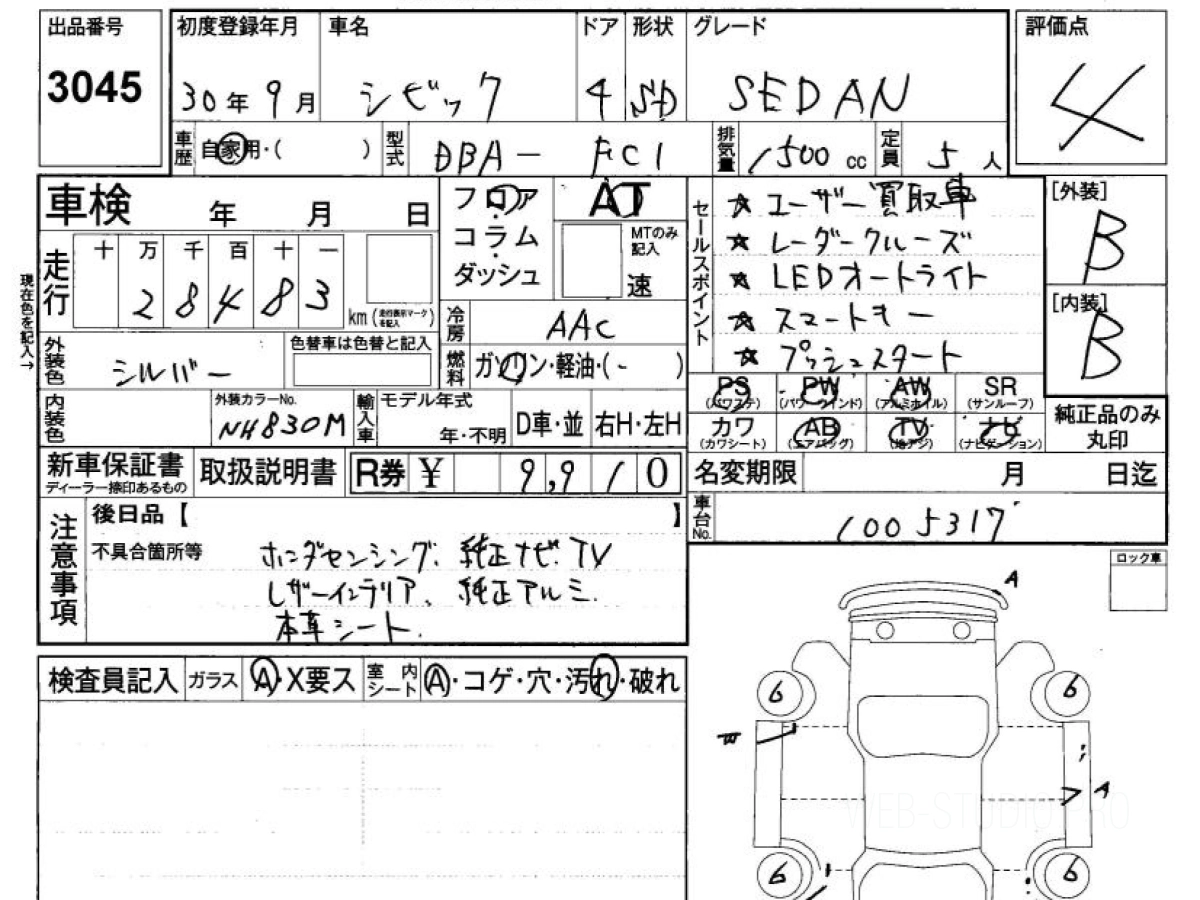 出品番号
3045
初度登録年月
30年9月
車名
シビック
ドア
4
形状
SD
グレード
SEDAN
評価点
4
車歴
自家用・( )
型式
DBA - FC1
排気量
1500 cc
定員
5人
車検 年 月 日
走行
十 万 千 百 十 一
2 8 4 8 3
km (走行表示マークを記入)
現在色を記入→
フロア・
コラム・
ダッシュ
AT
MTのみ記入
速
セールスポイント
★ ユーザー買取車
★ レーダークルーズ
★ LEDオートライト
★ スマートキー
★ プッシュスタート
[外装]
B
[内装]
B
外装色
シルバー
色替車は色替と記入
冷房
AAC
燃料
ガソリン・軽油・(- )
内装色
外装カラーNo.
NH830M
輸入車
モデル年式
年・不明
D車・並
右H・左H
PS
(パワステ)
PW
(パワーウインド)
AW
(アルミホイル)
SR
(サンルーフ)
カワ
(カワシート)
AB
(エアバッグ)
TV
(地デジ)
ナビ
(ナビゲーション)
純正品のみ
丸印
新車保証書
ディーラー捺印あるもの
取扱説明書
R券 ¥ 9,910
名変期限 月 日迄
車台No.
1005317
注意事項
後日品【 】
不具合箇所等
ホンダセンシング、純正ナビ.TV
レザーインテリア、純正アルミ.
本革シート.
ロック車
検査員記入
ガラス
A・X要ス
室内シート
A・コゲ・穴・汚れ・破れ
A
6 6
W
A
6 6
WEB-STUDIO PRO